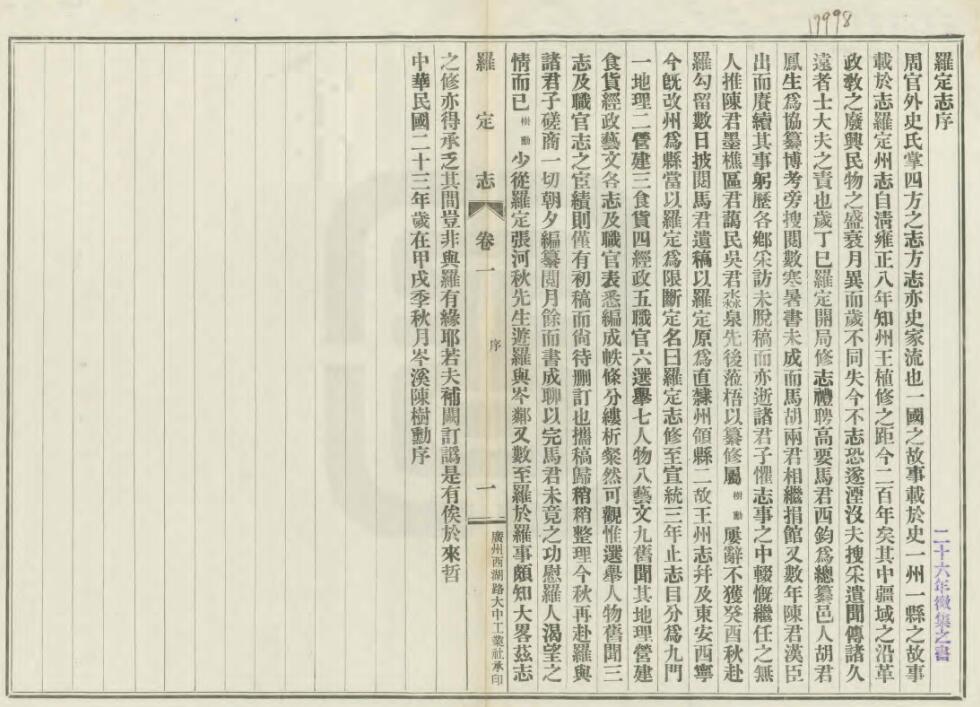 17998
羅定志序
周官外史氏掌四方之志方志亦史家流也一國之故事載於史一州一縣之故事
載於志羅定州志自清雍正八年知州王植修之距今二百年矣其中疆域之沿革
政教之廢興民物之盛衰月異而歲不同失今不志恐遂湮沒夫搜采遺聞傳諸久
遠者士大夫之責也歲丁巳羅定開局修志禮聘高要馬君西鈞爲總纂邑人胡君
鳳生爲協纂博考旁搜閱數寒暑書未成而馬胡兩君相繼捐館又數年陳君漢臣
出而賡續其事躬歷各鄉采訪未脫稿而亦逝諸君子懼志事之中輟慨繼任之無
人推陳君墨樵區君藹民吳君淼泉先後蒞梧以纂修屬樹勳屢辭不獲癸酉秋赴
羅勾留數日披閱馬君遺稿以羅定原爲直隸州領縣二故王州志并及東安西寧
今旣改州爲縣當以羅定爲限斷定名曰羅定志修至宣統三年止志目分爲九門
一地理二營建三食貨四經政五職官六選舉七人物八藝文九舊聞其地理營建
食貨經政藝文各志及職官表悉編成帙條分縷析粲然可觀惟選舉人物舊聞三
志及職官志之宦績則僅有初稿而尙待删訂也攜稿歸稍稍整理今秋再赴羅與
諸君子磋商一切朝夕編纂閱月餘而書成聊以完馬君未竟之功慰羅人渴望之
情而已樹勳少從羅定張河秋先生遊羅與岑鄰又數至羅於羅事頗知大畧茲志
羅定志 卷一 序 一 廣州西湖路大中工業社承印
之修亦得承乏其間豈非與羅有緣耶若夫補闕訂譌是有俟於來哲
中華民國二十三年歲在甲戌季秋月岑溪陳樹勳序
二十六年徵集之書